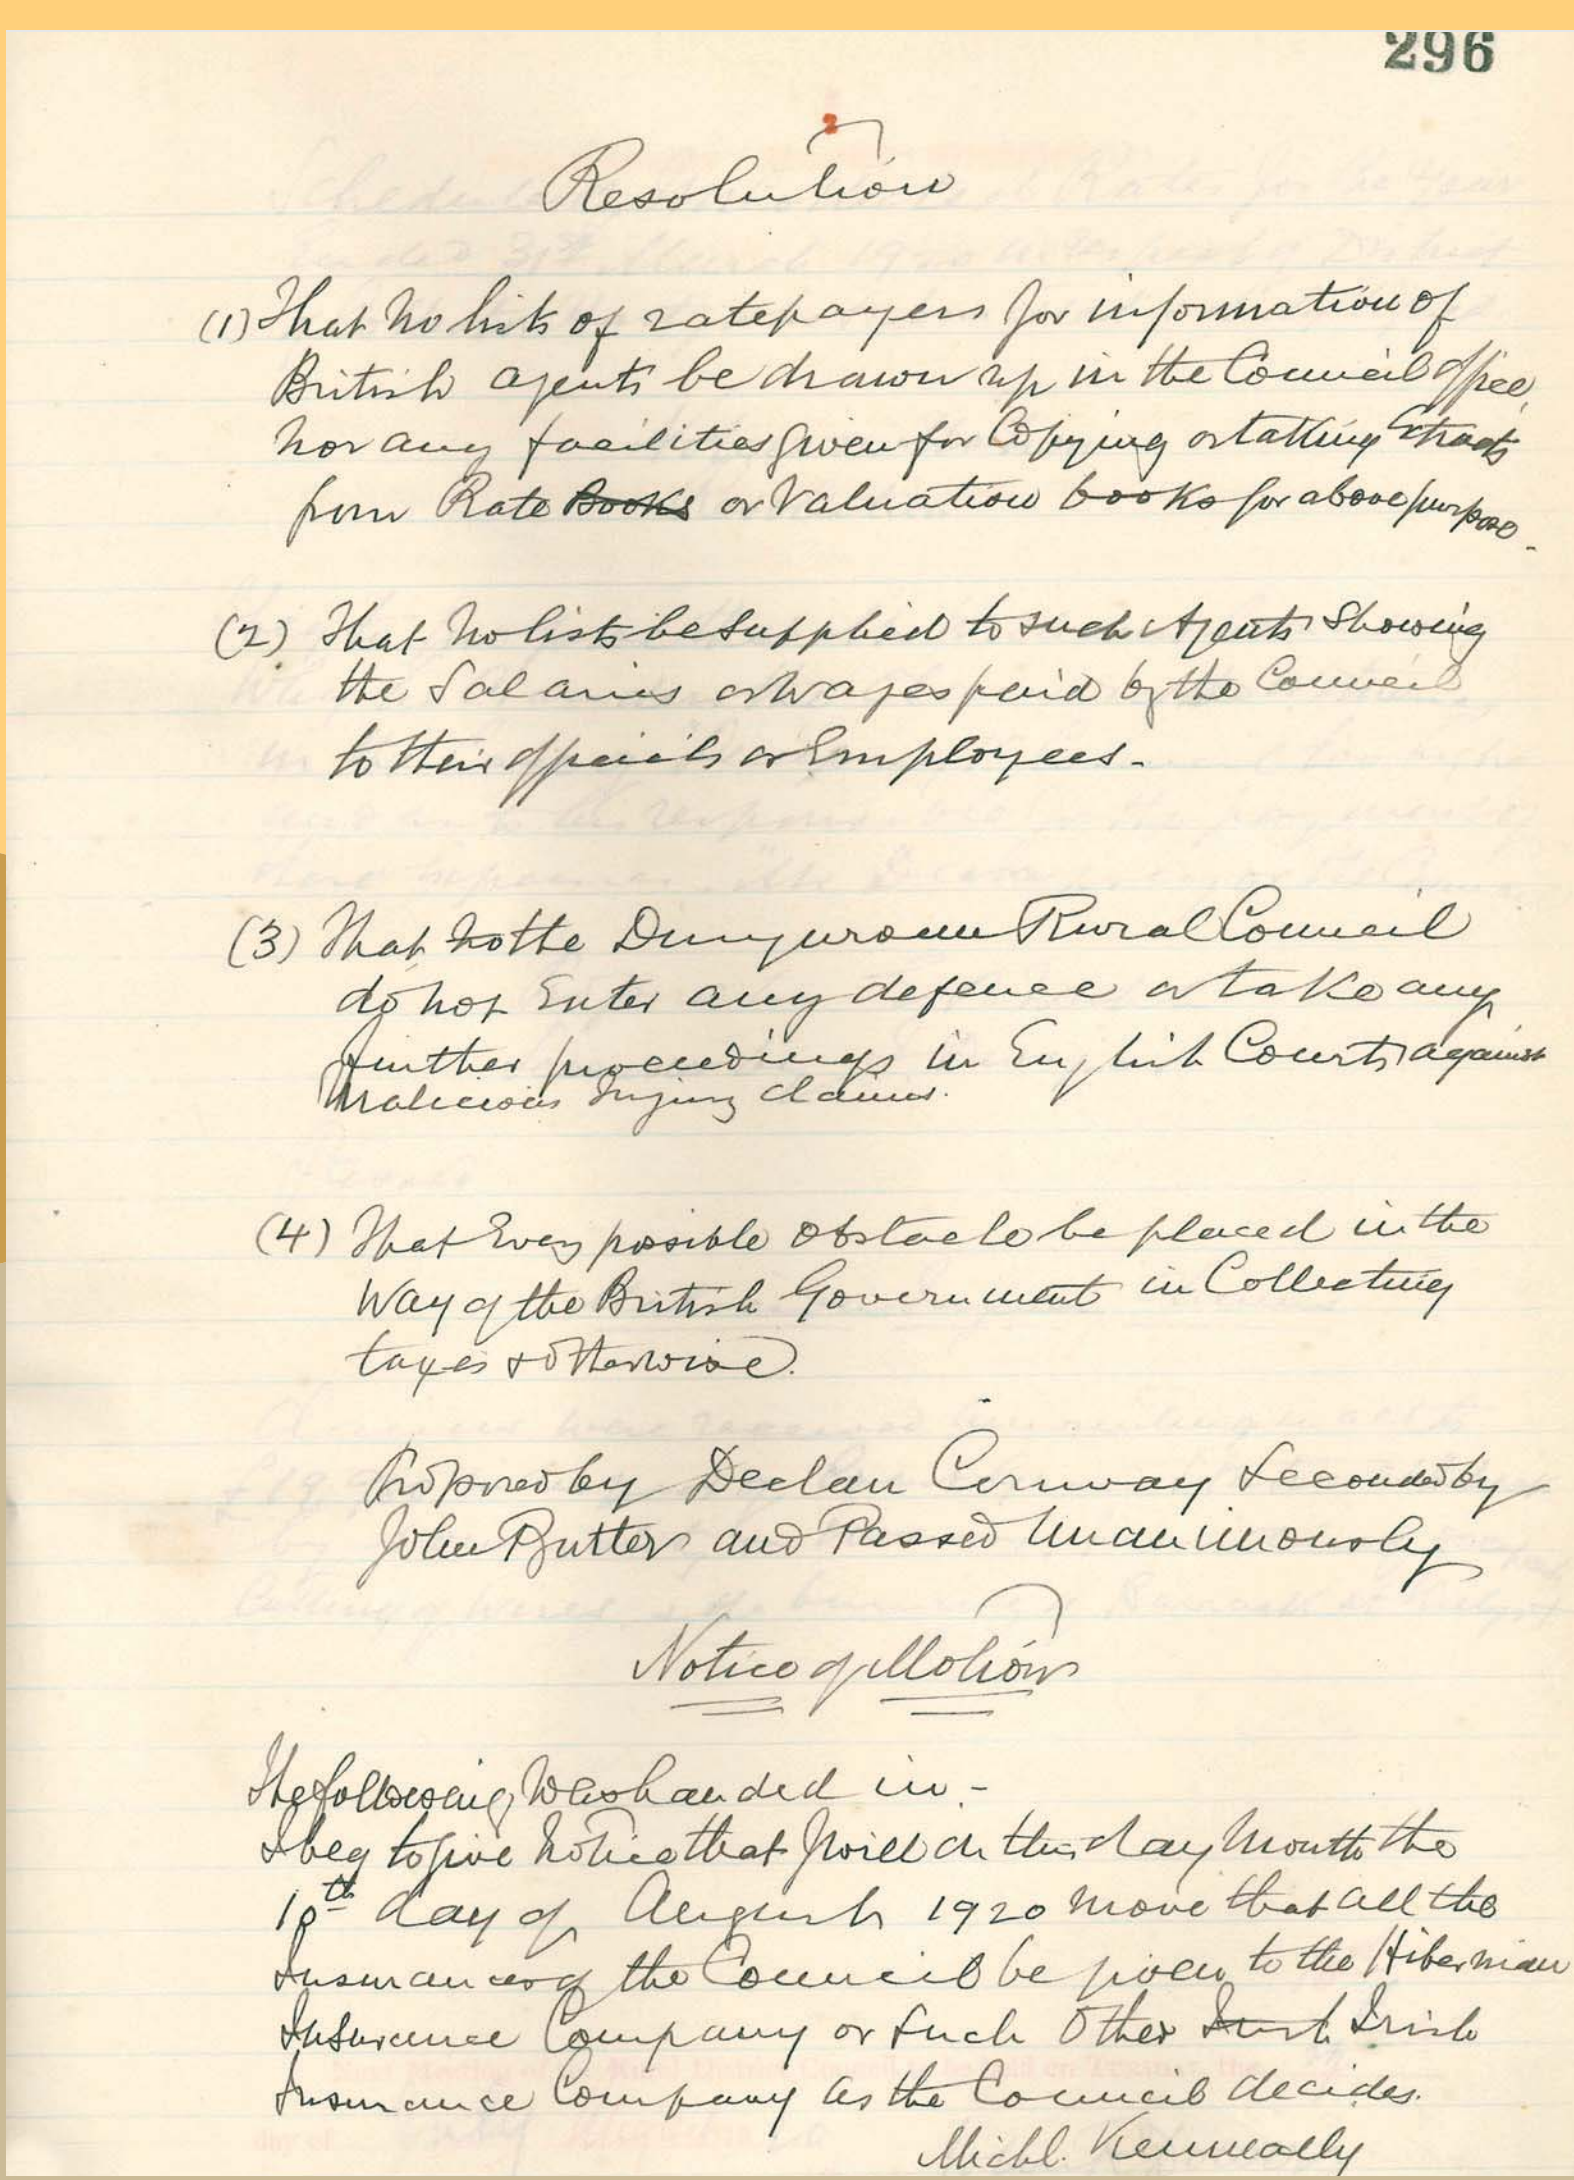 296
2
Resolution
(1) That no lists of ratepayers for information of
British agents be drawn up in the Council office,
nor any facilities given for Copying or taking Extracts
from Rate Books or Valuation books for above purpose.
(2) That no lists be Supplied to such Agents Showing
the Salaries or Wages paid by the Council
to their officials or Employees.
(3) That no the Dungarvan Rural Council
do not Enter any defence or take any
further proceedings in English Courts against
Malicious Injury Claims.
(4) That Every possible obstacle be placed in the
Way of the British Government in Collecting
taxes & otherwise.
Proposed by Declan Conway Seconded by
John Butler and Passed Unanimously
Notice of Motion
The following Was handed in -
I beg to give notice that I will on this day Month the
10th day of August 1920 move that all the
Insurances of the Council be given to the Hibernian
Insurance Company or Such Other Irish Irish
Insurance Company as the Council decides.
Michl. Kenneally